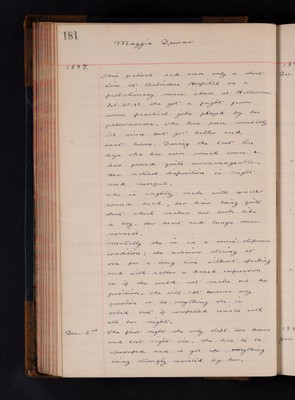 181
Maggie Dewar
1897.
This patient had been only a short
time at Belvidere Hospital as a
probationary nurse when at Hallowe'en
she got a fright from
some practical joke played by her
fellow nurses. She has been mentally
ill since but got better and
went home. During the last
days she has been much worse &
has proved quite unmanageable.
Her natural disposition is bright
and cheerful.
She is slightly made with small
round head, her hair being quite
short which makes her look like
a boy. Her heart and lungs seem
normal.
Mentally she is in a semi-stuporose
condition; she remains staring at
one for a long time without speaking
and with rather a dazed expression
as if she could not make out her
position, she will not answer any
question or do anything she is
asked but if compelled resists with
all her might.
Dec. 2nd The first night she only slept two hours
and last night six, she has to be
spoonfed and is got up everything
being strongly resisted by her.